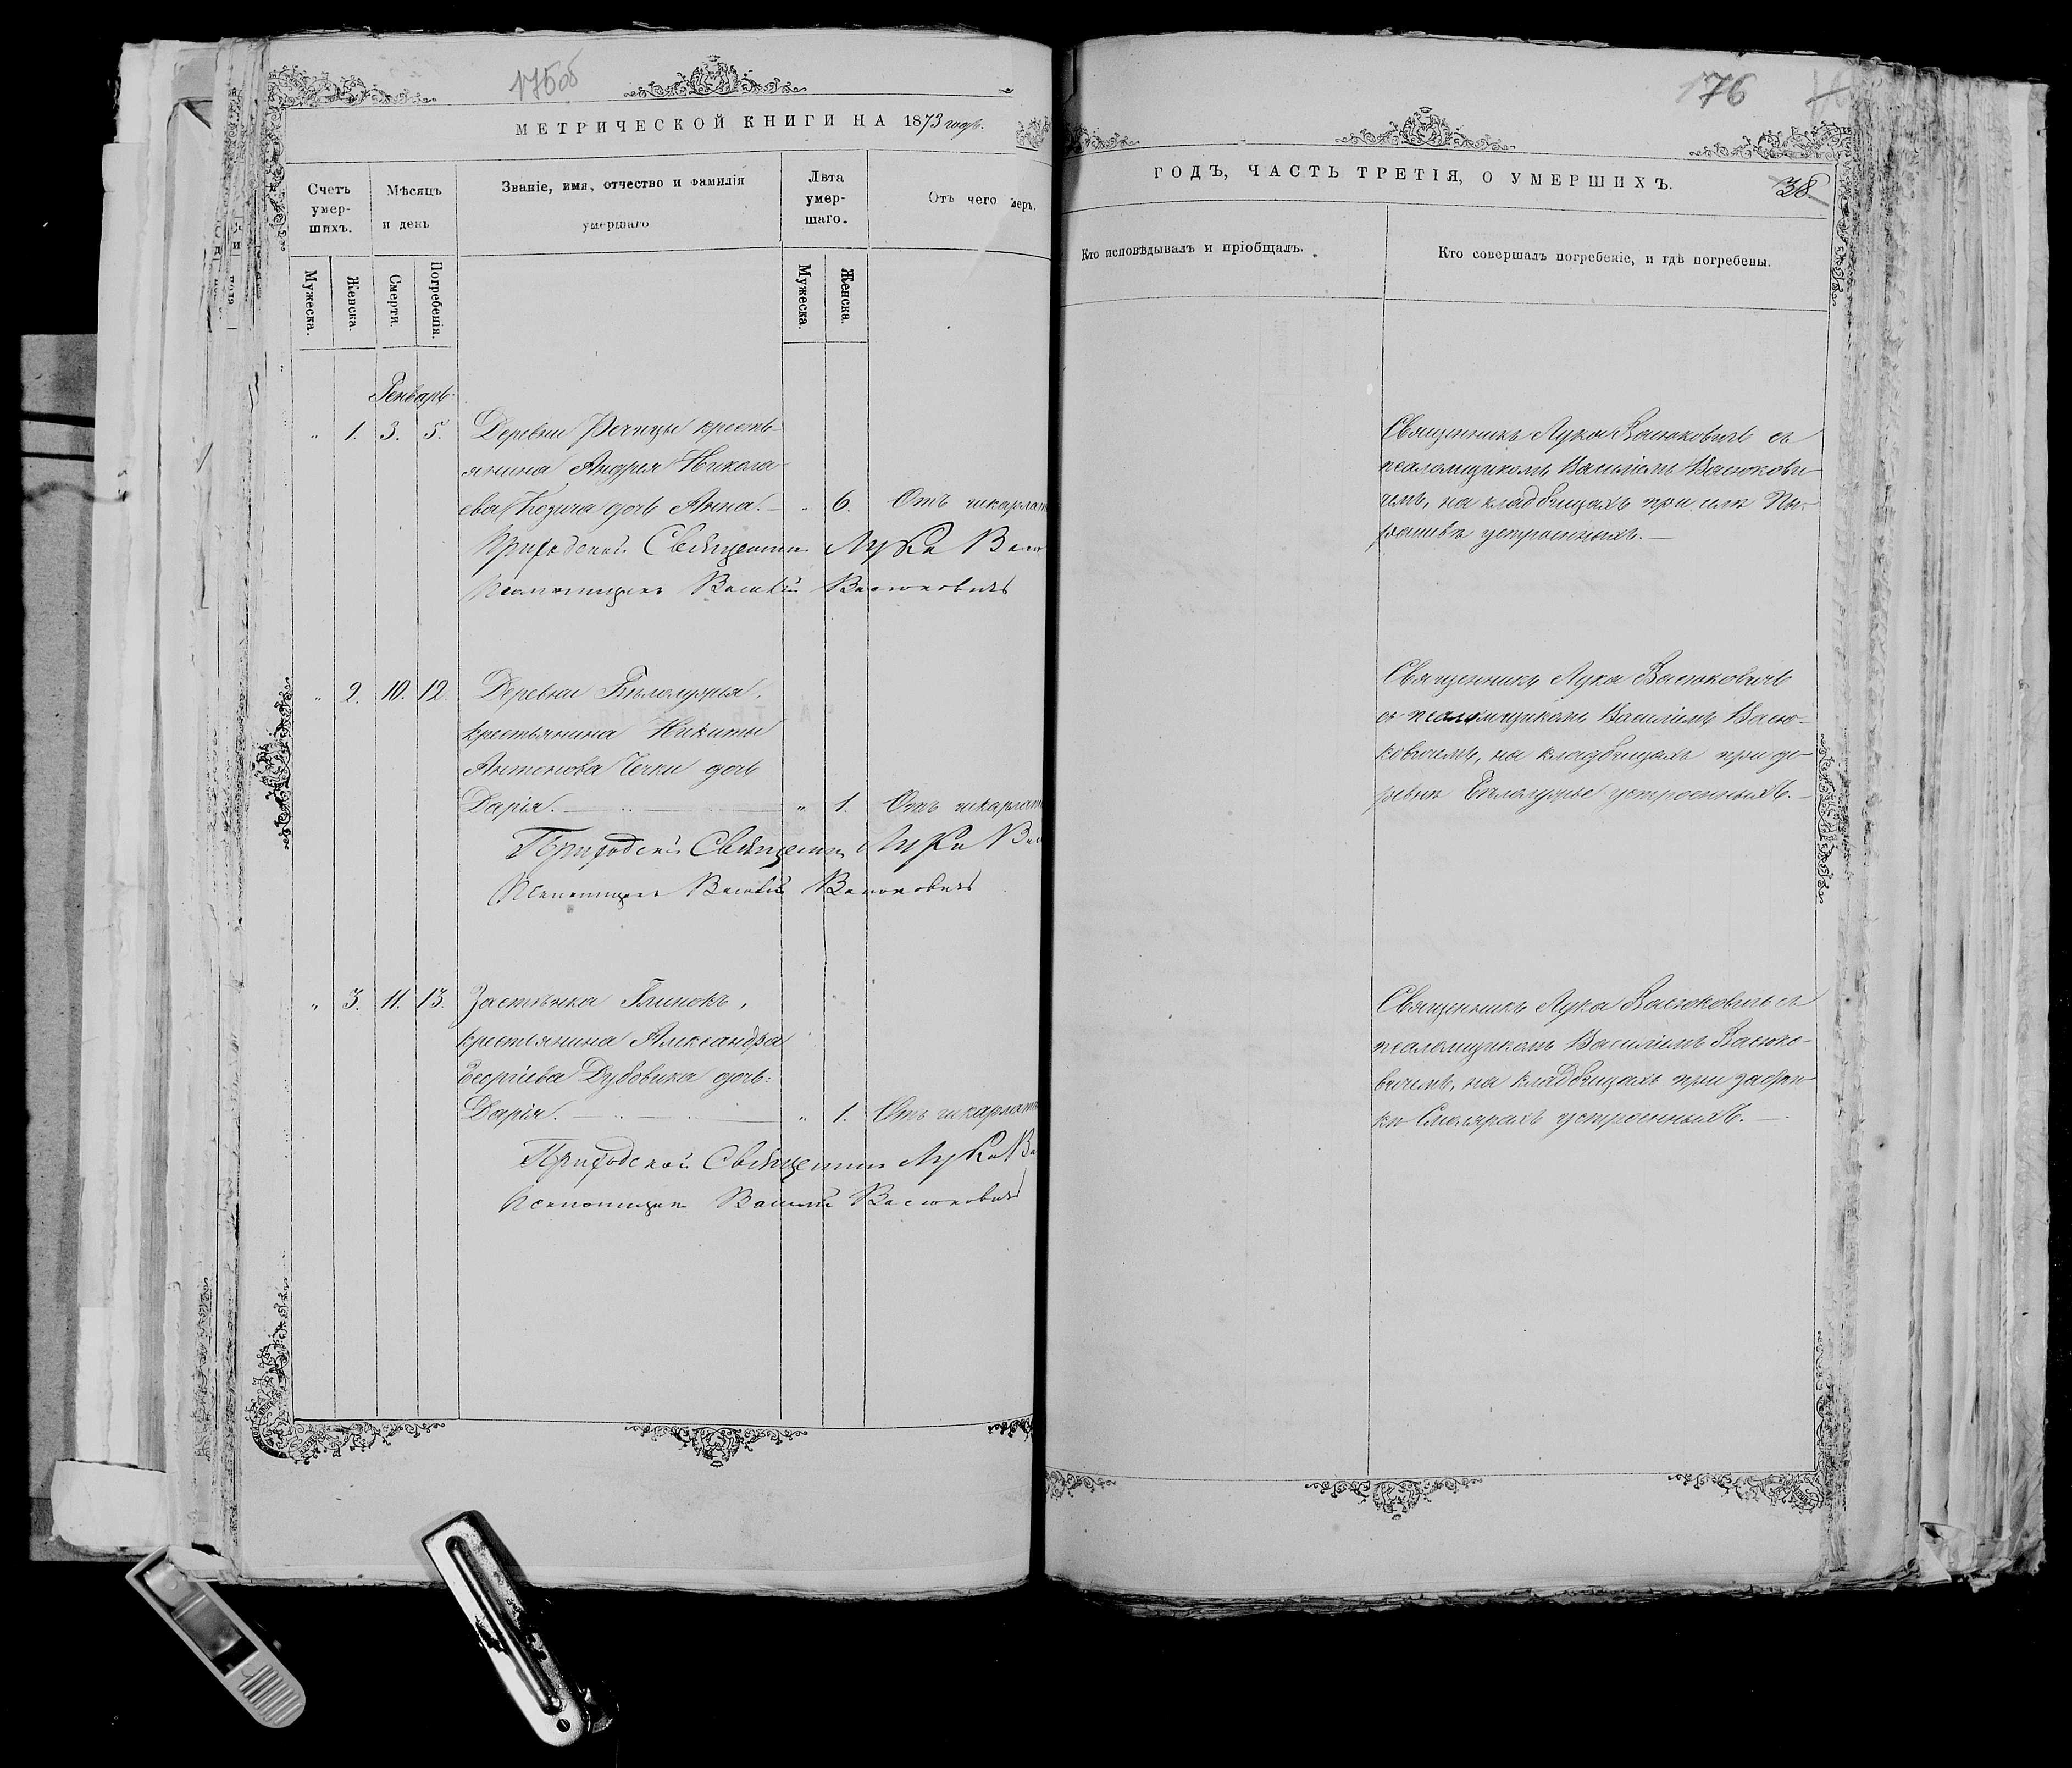 175об
МЕТРИЧЕСКОЙ КНИГИ НА 1873 годъ.
Счетъ умер-шихъ.
Мѣсяцъ и день
Званіе, имя, отчество и фамилія умершаго
Лѣта умер-шаго.
Отъ чего умеръ.
Мужеска.
Женска.
Смерти.
Погребенія.
Мужеска.
Женска.
Генварь.
" 1. 3. 5. Деревни Речицы кресть-
янина Андрея Никола-
ева Козича дочь Анна. — " 6. Отъ шкарлат
Приходской Священникъ Лука Васю
Псаломщикъ Василій Васюковичъ
" 2. 10. 12. Деревни Бѣлолузья,
крестьянина Никиты
Антонова Чечки дочь
Дарія. — " — " 1. Отъ шкарлат
Приходской Священникъ Лука Вас
Псаломщикъ Василій Васюковичъ
" 3. 11. 13. Застѣнка Глинокъ,
крестьянина Александра
Георгіева Дубовика дочь:
Дарія. — " — " 1. Отъ шкарлат
Приходской Священникъ Лука Ва
Псаломщикъ Василій Васюковичъ
176
ГОДЪ, ЧАСТЬ ТРЕТІЯ, О УМЕРШИХЪ.
38
Кто исповѣдывалъ и пріобщалъ.
Кто совершалъ погребеніе, и гдѣ погребены.
Священникъ Лука Васюковичъ съ
псаломщикомъ Василіемъ Васюкови-
чемъ, на кладбищахъ при селѣ
устроенныхъ. —
Священникъ Лука Васюковичъ
съ псаломщикомъ Василіемъ Васю-
ковичемъ, на кладбищахъ при де-
ревнѣ Бѣлолузье устроенныхъ. —
Священникъ Лука Васюковичъ съ
псаломщикомъ Василіемъ Васюко-
вичемъ, на кладбищахъ при застѣн-
кѣ Смолярахъ устроенныхъ. —